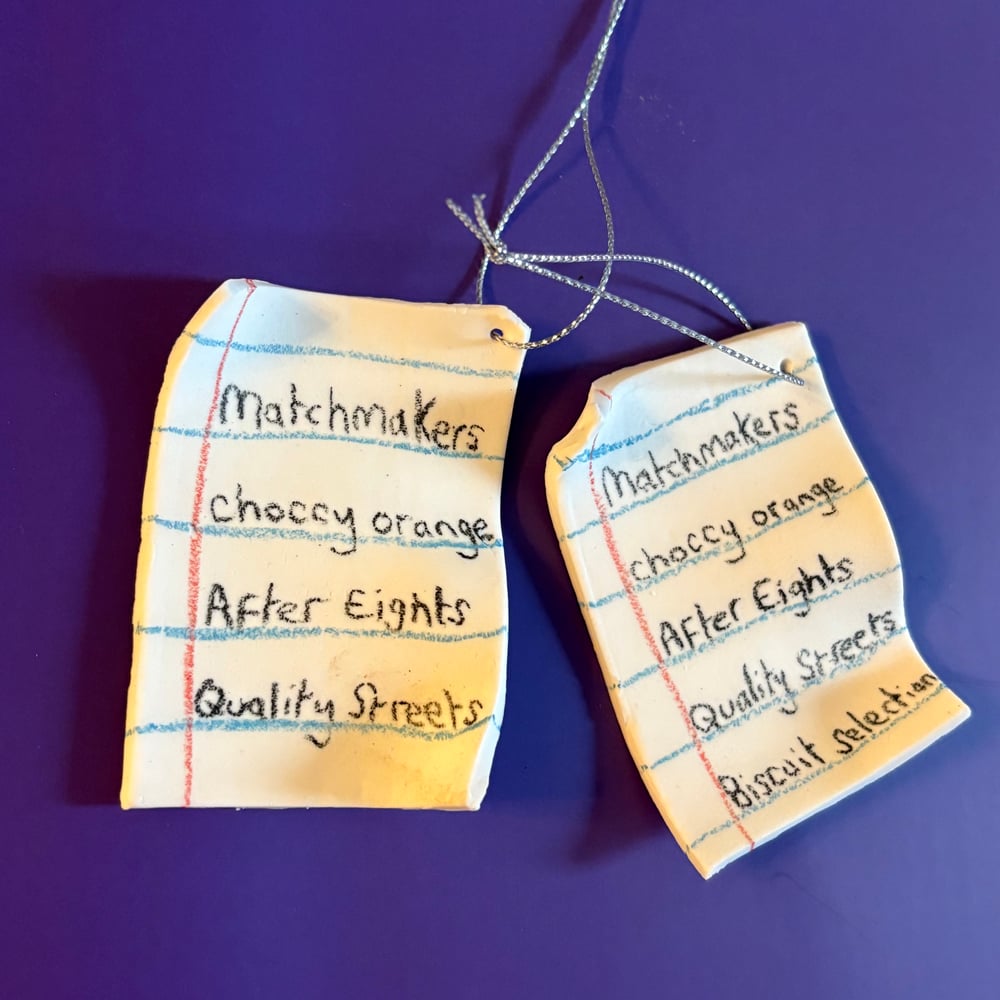 Matchmakers
choccy orange
After Eights
Quality Streets
Matchmakers
choccy orange
After Eights
Quality Streets
Biscuit selection